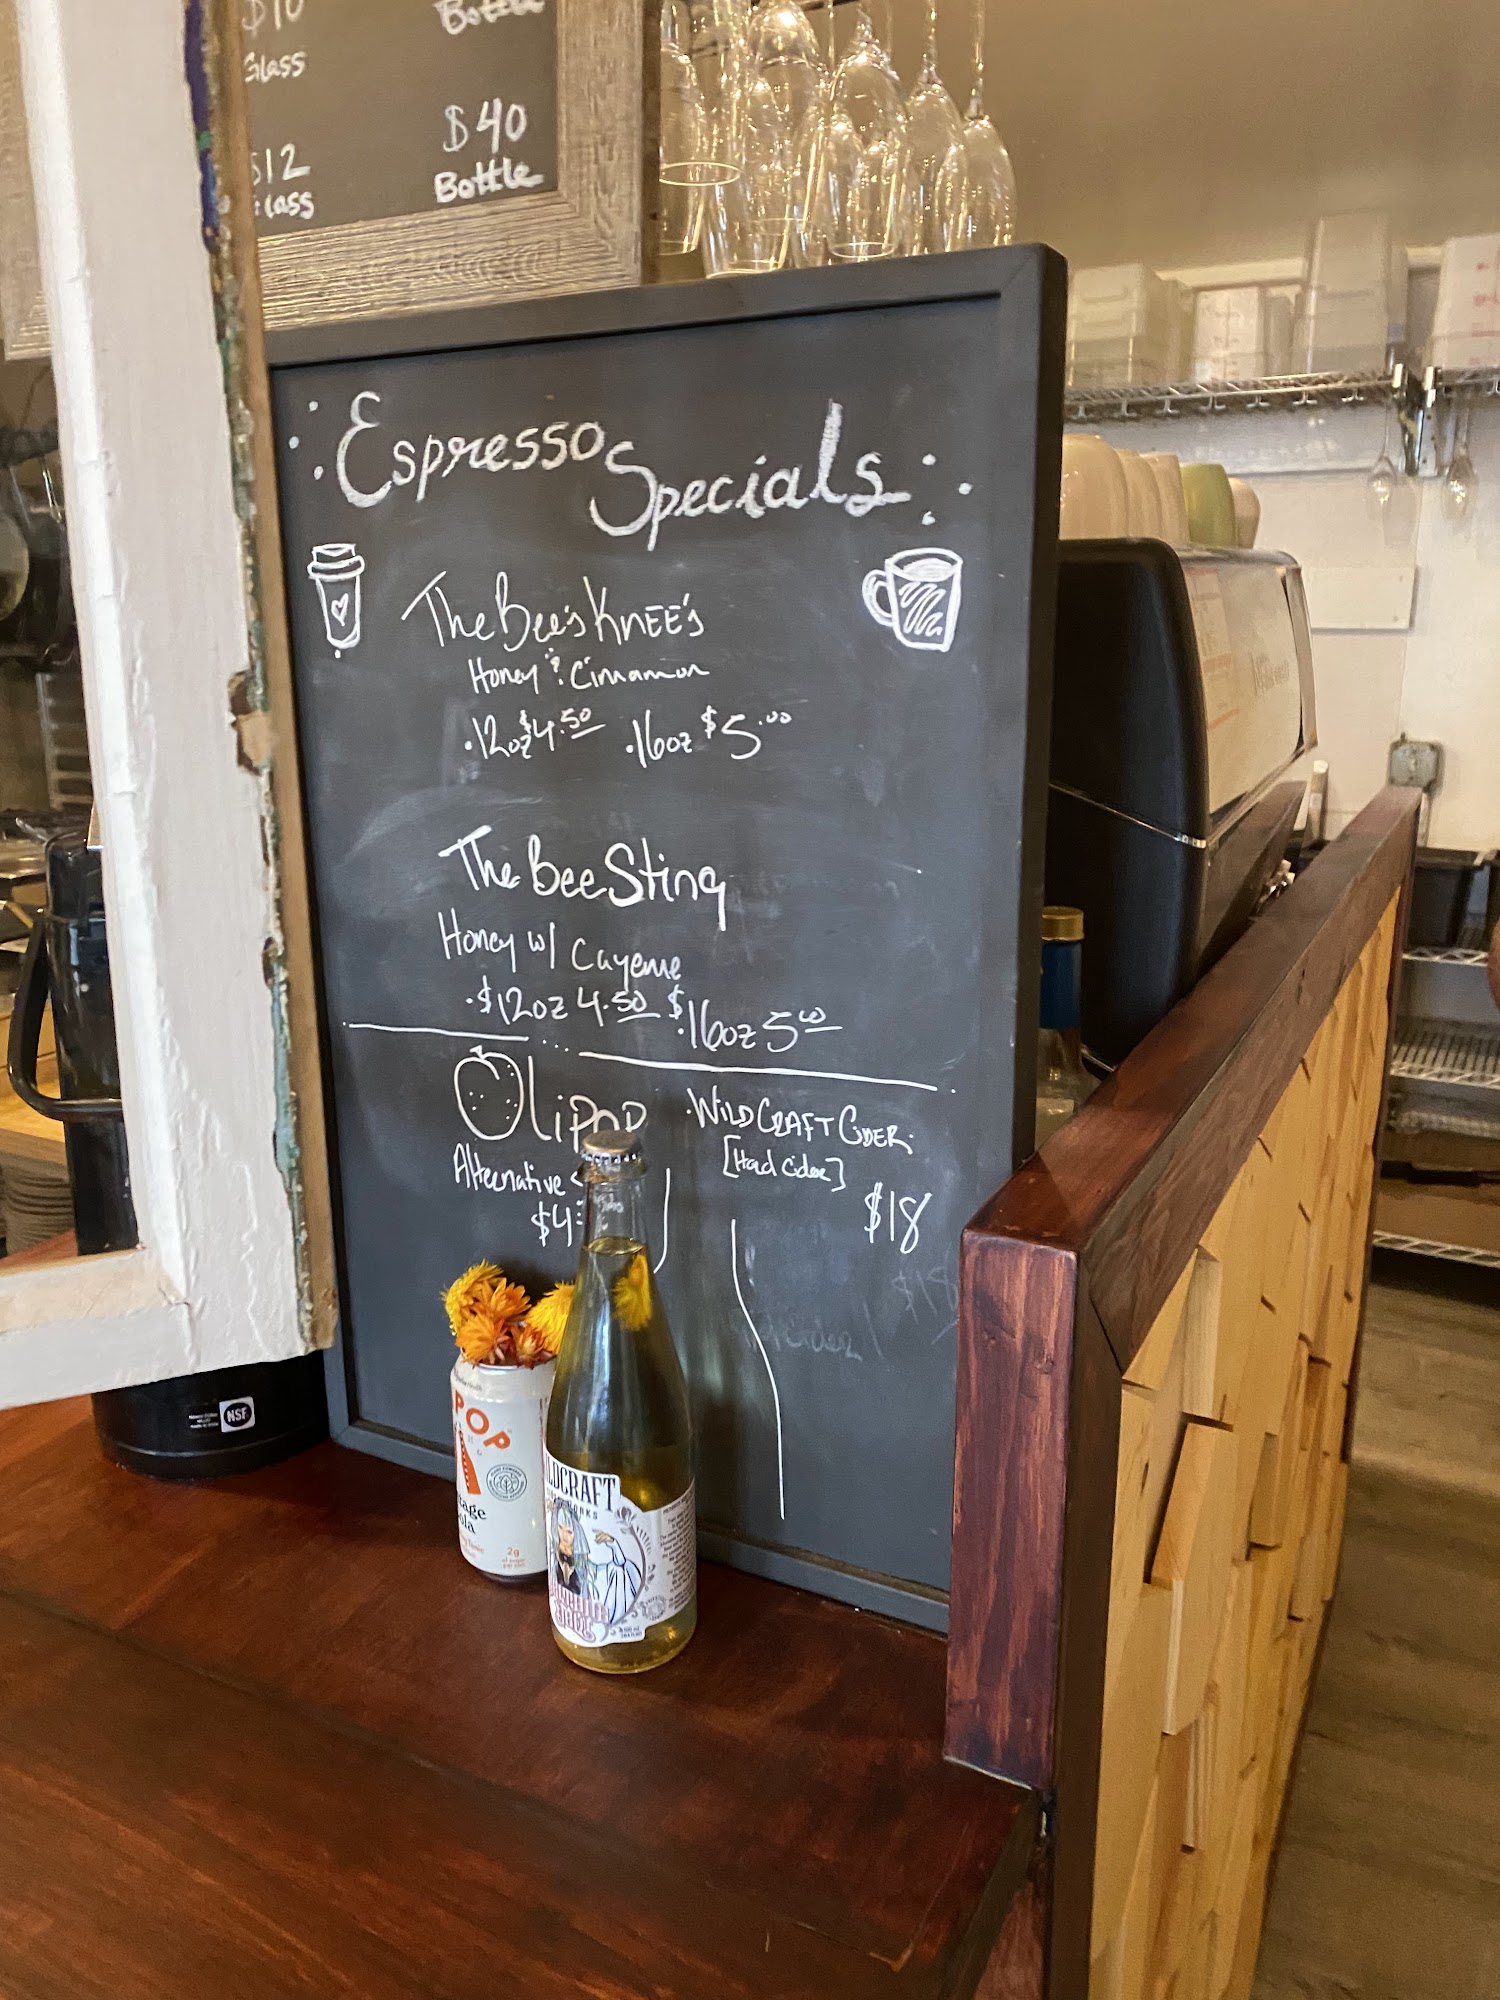 $10
Glass
Bottle
$12
Glass
$40
Bottle
Espresso Specials
The Bee's KNEE'S
Honey & Cinnamon
·12oz $4.50 ·16oz $5.00
The Bee Sting
Honey w/ Cayenne
·$12oz 4.50 $·16oz 5.00
OLiPOP
Alternative
$4
·WILDCRAFT CIDER·
[Hard Cider]
$18
$18
Cider
NSF
POP
2g
WILDCRAFT